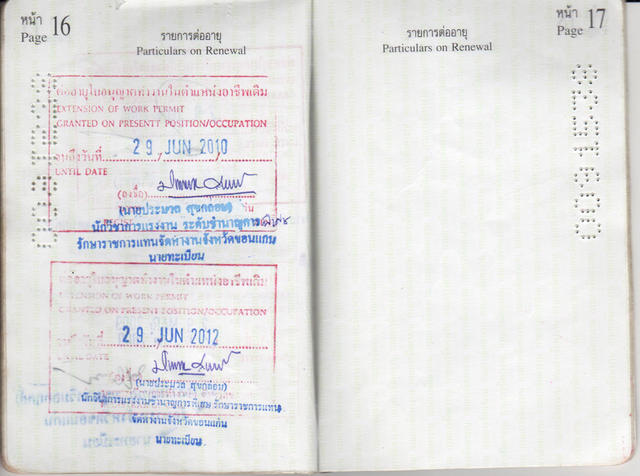 หน้า
Page 16
รายการต่ออายุ
Particulars on Renewal
ต่ออายุใบอนุญาตทำงานในตำแหน่งอาชีพเดิม
EXTENSION OF WORK PERMIT
GRANTED ON PRESENTT POSITION/OCCUPATION
จนถึงวันที่ 29 JUN 2010
UNTIL DATE
(ลงชื่อ)
(นายประมวล สุขกล่อม)
นักวิชาการแรงงาน ระดับชำนาญการ
รักษาราชการแทนจัดหางานจังหวัดขอนแก่น
นายทะเบียน
ต่ออายุใบอนุญาตทำงานในตำแหน่งอาชีพเดิม
EXTENSION OF WORK PERMIT
GRANTED ON PRESENT POSITION/OCCUPATION
วันที่ 29 JUN 2012
UNTIL DATE
(นายประมวล สุขกล่อม)
นักวิชาการแรงงานชำนาญการพิเศษ รักษาราชการแทน
จัดหางานจังหวัดขอนแก่น
นายทะเบียน
หน้า
Page 17
รายการต่ออายุ
Particulars on Renewal